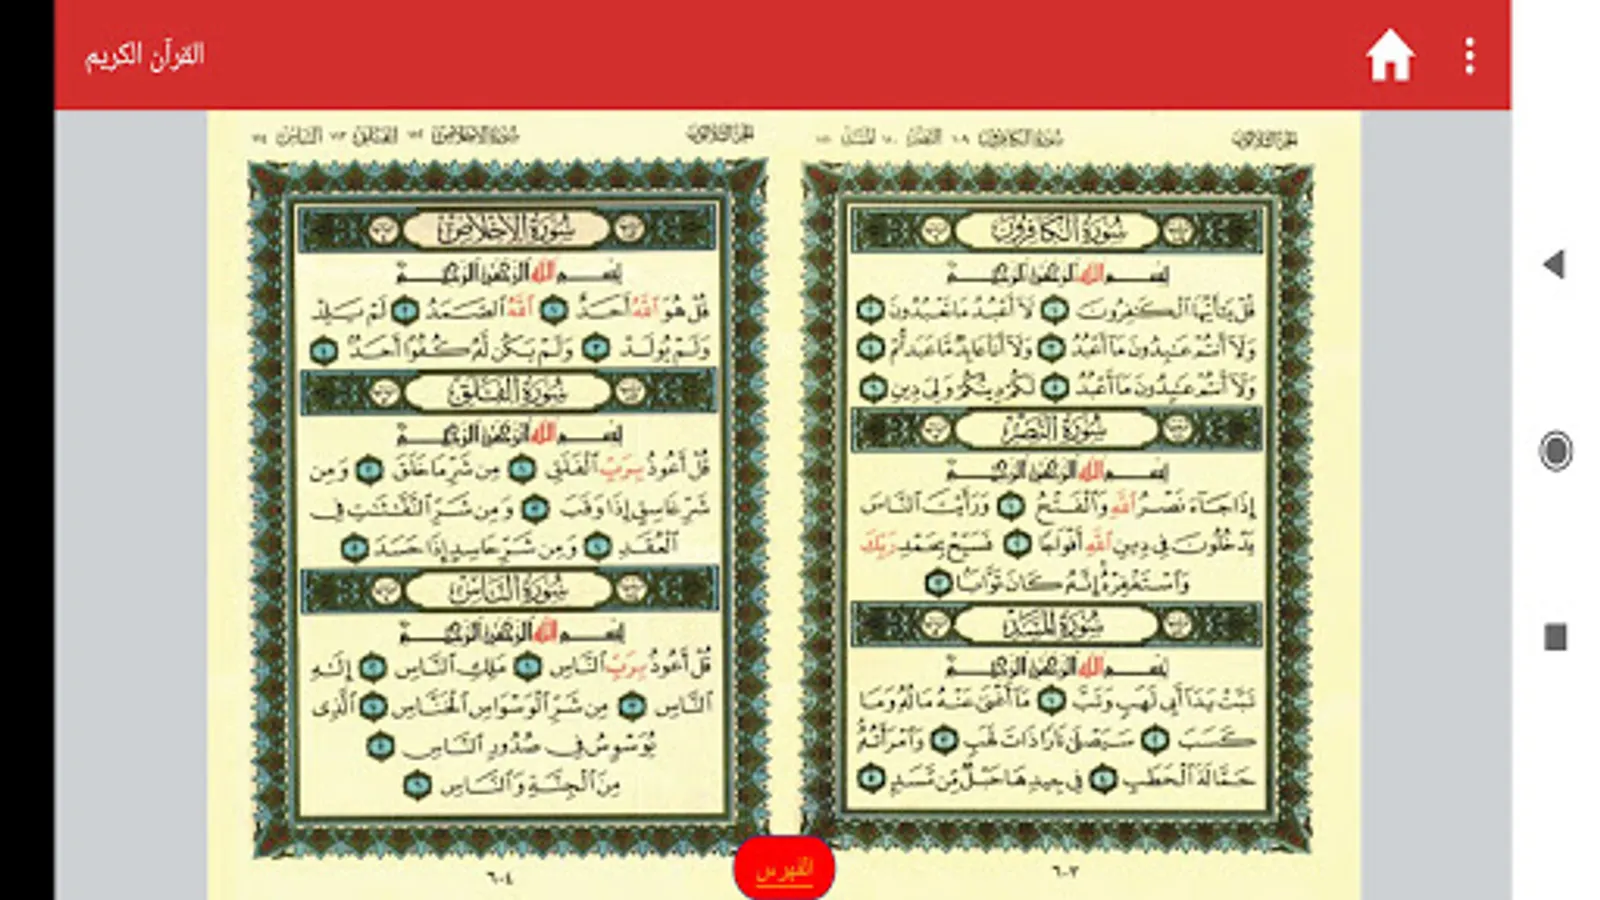 القرآن الكريم
سورة الكافرون ١٠٩ النصر ١١٠ المسد ١١١
الجزء الثلاثون
سُورَةُ الكَافِرُونَ
بِسْمِ اللَّهِ الرَّحْمَٰنِ الرَّحِيمِ
قُلْ يَٰٓأَيُّهَا ٱلْكَٰفِرُونَ ١ لَآ أَعْبُدُ مَا تَعْبُدُونَ ٢
وَلَآ أَنتُمْ عَٰبِدُونَ مَآ أَعْبُدُ ٣ وَلَآ أَنَا۠ عَابِدٌ مَّا عَبَدتُّمْ ٤
وَلَآ أَنتُمْ عَٰبِدُونَ مَآ أَعْبُدُ ٥ لَكُمْ دِينُكُمْ وَلِىَ دِينِ ٦
سُورَةُ النَّصْرِ
بِسْمِ اللَّهِ الرَّحْمَٰنِ الرَّحِيمِ
إِذَا جَآءَ نَصْرُ ٱللَّهِ وَٱلْفَتْحُ ١ وَرَأَيْتَ ٱلنَّاسَ
يَدْخُلُونَ فِى دِينِ ٱللَّهِ أَفْوَاجًا ٢ فَسَبِّحْ بِحَمْدِ رَبِّكَ
وَٱسْتَغْفِرْهُ إِنَّهُۥ كَانَ تَوَّابًۢا ٣
سُورَةُ المَسَدِ
بِسْمِ اللَّهِ الرَّحْمَٰنِ الرَّحِيمِ
تَبَّتْ يَدَآ أَبِى لَهَبٍ وَتَبَّ ١ مَآ أَغْنَىٰ عَنْهُ مَالُهُۥ وَمَا
كَسَبَ ٢ سَيَصْلَىٰ نَارًا ذَاتَ لَهَبٍ ٣ وَٱمْرَأَتُهُۥ
حَمَّالَةَ ٱلْحَطَبِ ٤ فِى جِيدِهَا حَبْلٌ مِّن مَّسَدٍۭ ٥
٦٠٣
سورة الإخلاص ١١٢ الفلق ١١٣ الناس ١١٤
الجزء الثلاثون
سُورَةُ الإِخْلَاصِ
بِسْمِ اللَّهِ الرَّحْمَٰنِ الرَّحِيمِ
قُلْ هُوَ ٱللَّهُ أَحَدٌ ١ ٱللَّهُ ٱلصَّمَدُ ٢ لَمْ يَلِدْ
وَلَمْ يُولَدْ ٣ وَلَمْ يَكُن لَّهُۥ كُفُوًا أَحَدٌۢ ٤
سُورَةُ الفَلَقِ
بِسْمِ اللَّهِ الرَّحْمَٰنِ الرَّحِيمِ
قُلْ أَعُوذُ بِرَبِّ ٱلْفَلَقِ ١ مِن شَرِّ مَا خَلَقَ ٢ وَمِن
شَرِّ غَاسِقٍ إِذَا وَقَبَ ٣ وَمِن شَرِّ ٱلنَّفَّٰثَٰتِ فِى
ٱلْعُقَدِ ٤ وَمِن شَرِّ حَاسِدٍ إِذَا حَسَدَ ٥
سُورَةُ النَّاسِ
بِسْمِ اللَّهِ الرَّحْمَٰنِ الرَّحِيمِ
قُلْ أَعُوذُ بِرَبِّ ٱلنَّاسِ ١ مَلِكِ ٱلنَّاسِ ٢ إِلَٰهِ
ٱلنَّاسِ ٣ مِن شَرِّ ٱلْوَسْوَاسِ ٱلْخَنَّاسِ ٤ ٱلَّذِى
يُوَسْوِسُ فِى صُدُورِ ٱلنَّاسِ ٥
مِنَ ٱلْجِنَّةِ وَٱلنَّاسِ ٦
٦٠٤
الفهرس